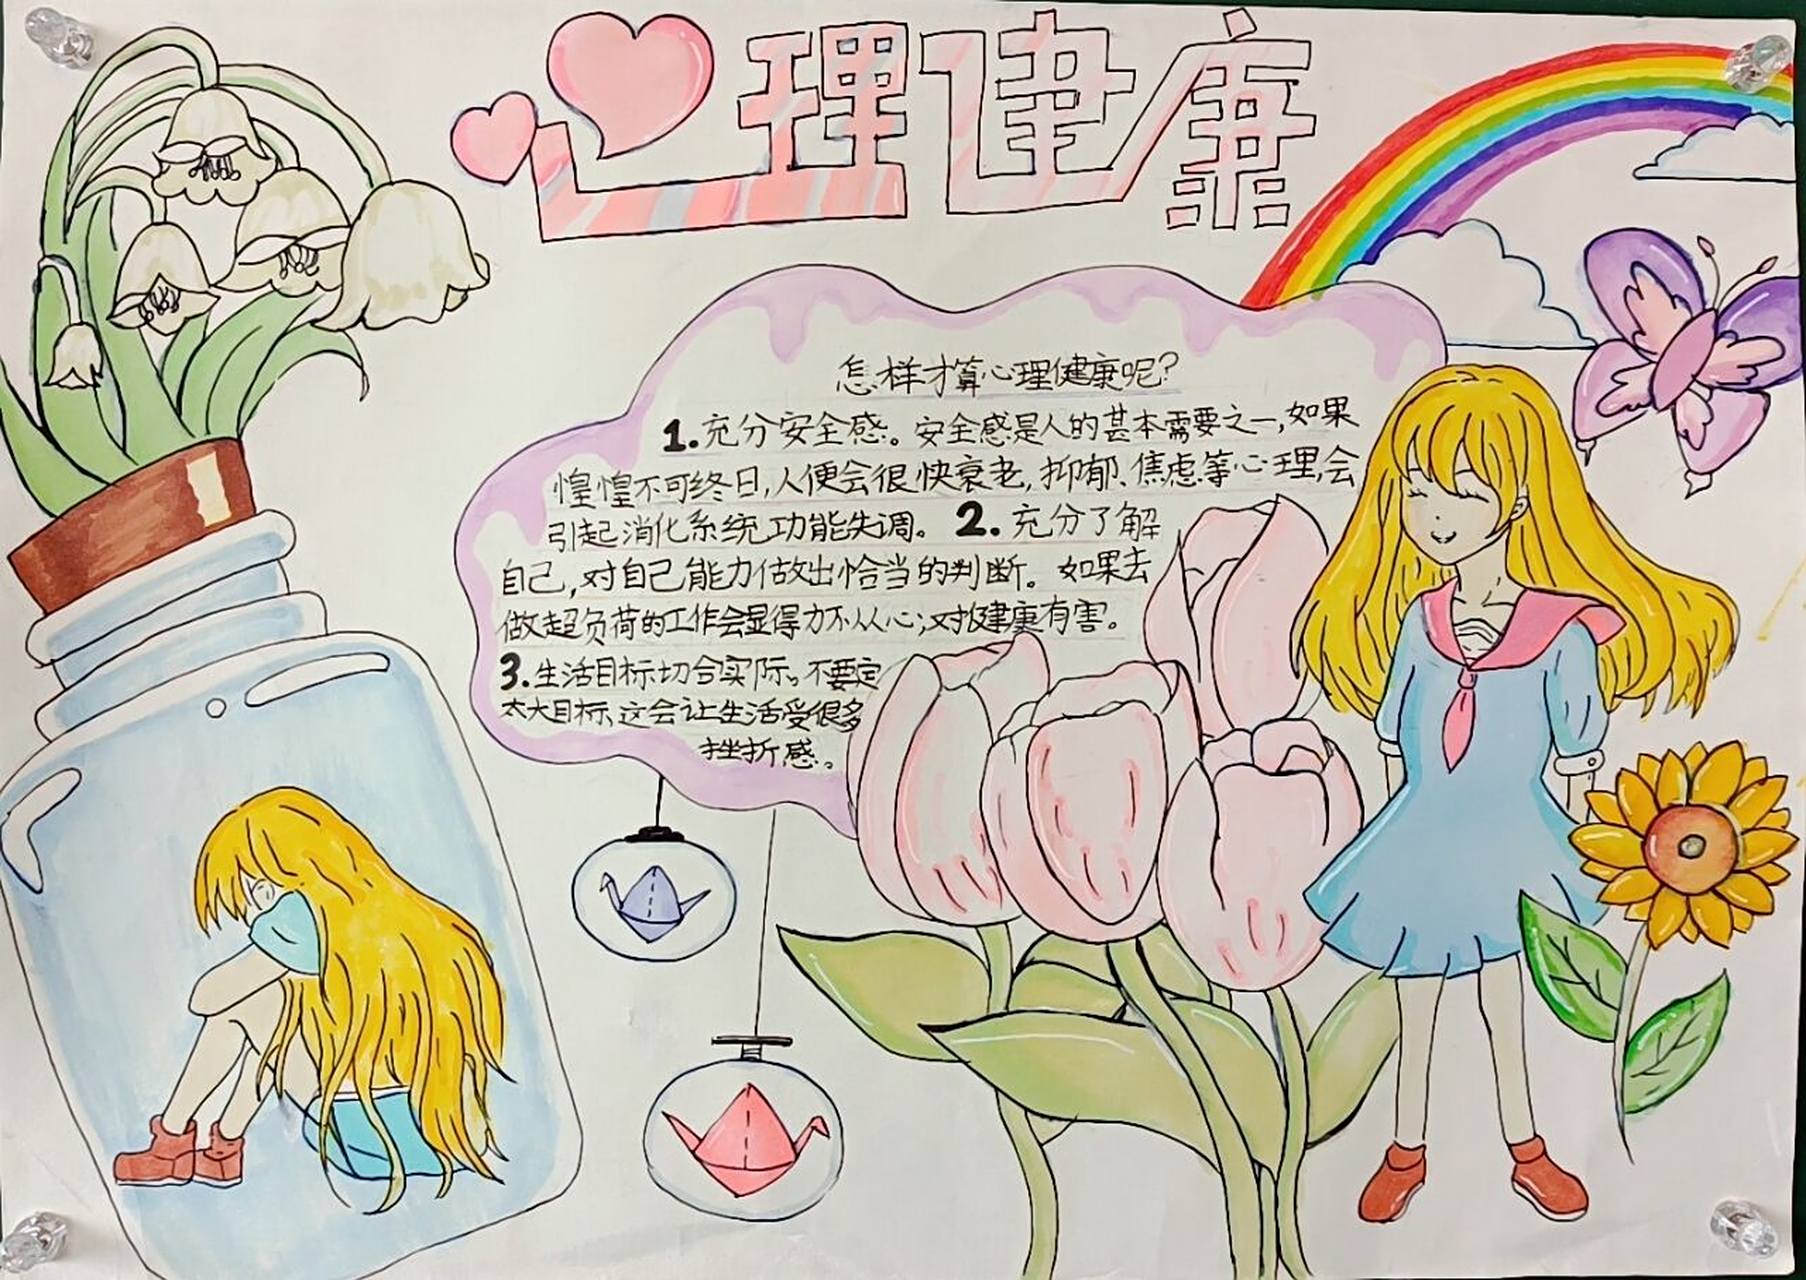 心理健康
怎样才算心理健康呢?
1.充分安全感。安全感是人的甚本需要之一,如果
惶惶不可终日,人便会很快衰老,抑郁、焦虑等心理,会
引起消化系统功能失调。 2.充分了解
自己,对自己能力做出恰当的判断。如果去
做超负荷的工作会显得力不从心;对健康有害。
3.生活目标切合实际。不要定
太大目标,这会让生活受很多
挫折感。